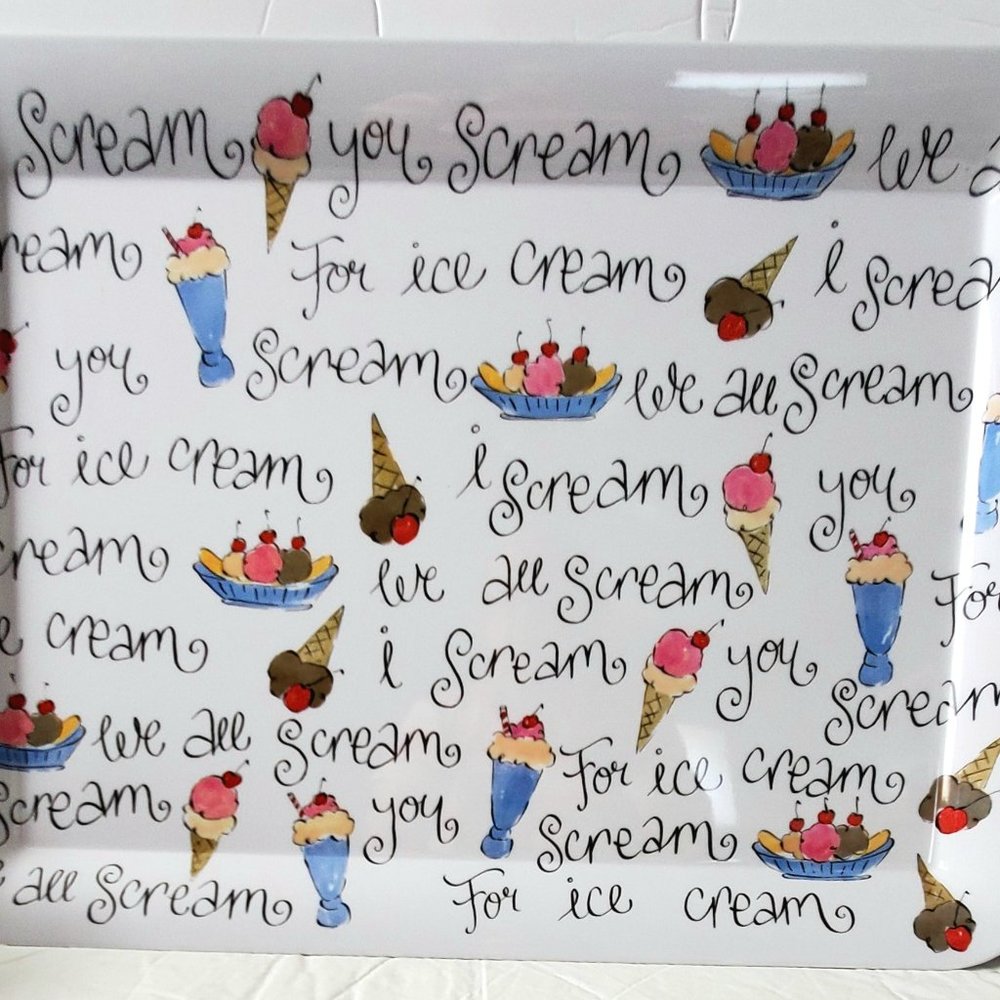 Scream you Scream We a
ream For ice cream i Screa
you Scream We all Scream
For ice cream i Scream you
cream We all Scream For
e cream i Scream you
We all Scream Scream
For ice cream
Scream you Scream
all Scream For ice cream